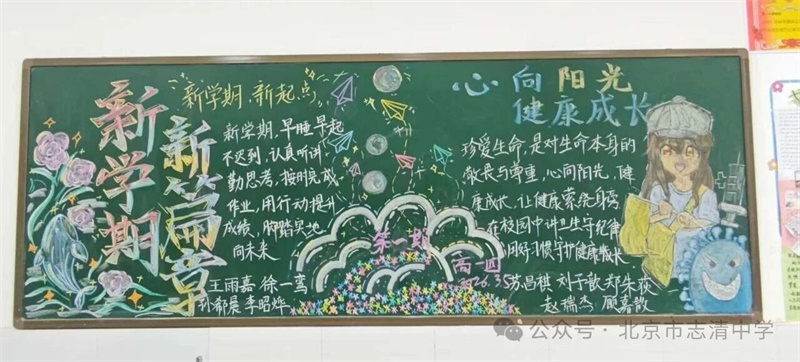 新学期
新篇章
新学期,新起点
新学期,早睡早起
不迟到,认真听讲
勤思考,按时完成
作业,用行动提升
成绩,脚踏实地
向未来
王雨嘉 徐一鸾
刘希晨 李昭烨
第一期
高一四
心向阳光
健康成长
珍爱生命,是对生命本身的
敬畏与尊重,心向阳光,健
康成长,让健康萦绕身旁
在校园中讲卫生守纪律
用好习惯守护健康成长
苏昌祺 刘子歆 郑朱荻
赵瑞杰 顾嘉散
公众号·北京市志清中学